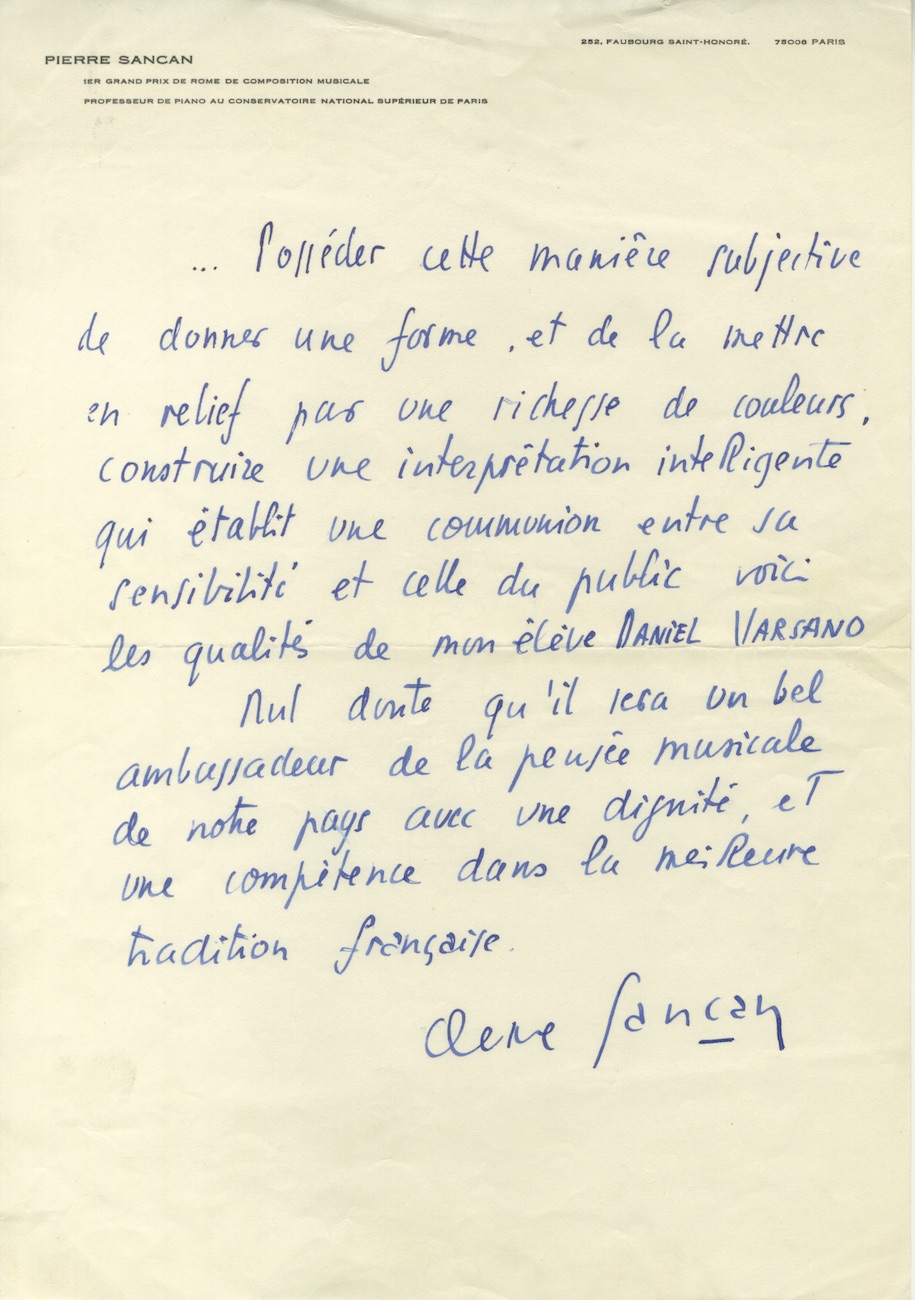 252, FAUBOURG SAINT-HONORÉ. 75008 PARIS
PIERRE SANCAN
1ER GRAND PRIX DE ROME DE COMPOSITION MUSICALE
PROFESSEUR DE PIANO AU CONSERVATOIRE NATIONAL SUPÉRIEUR DE PARIS
... Posséder cette manière subjective
de donner une forme, et de la mettre
en relief par une richesse de couleurs,
construire une interprétation intelligente
qui établit une communion entre sa
sensibilité et celle du public voici
les qualités de mon élève DANIEL VARSANO
Nul doute qu'il sera un bel
ambassadeur de la pensée musicale
de notre pays avec une dignité, et
une compétence dans la meilleure
tradition française.
Pierre Sancan